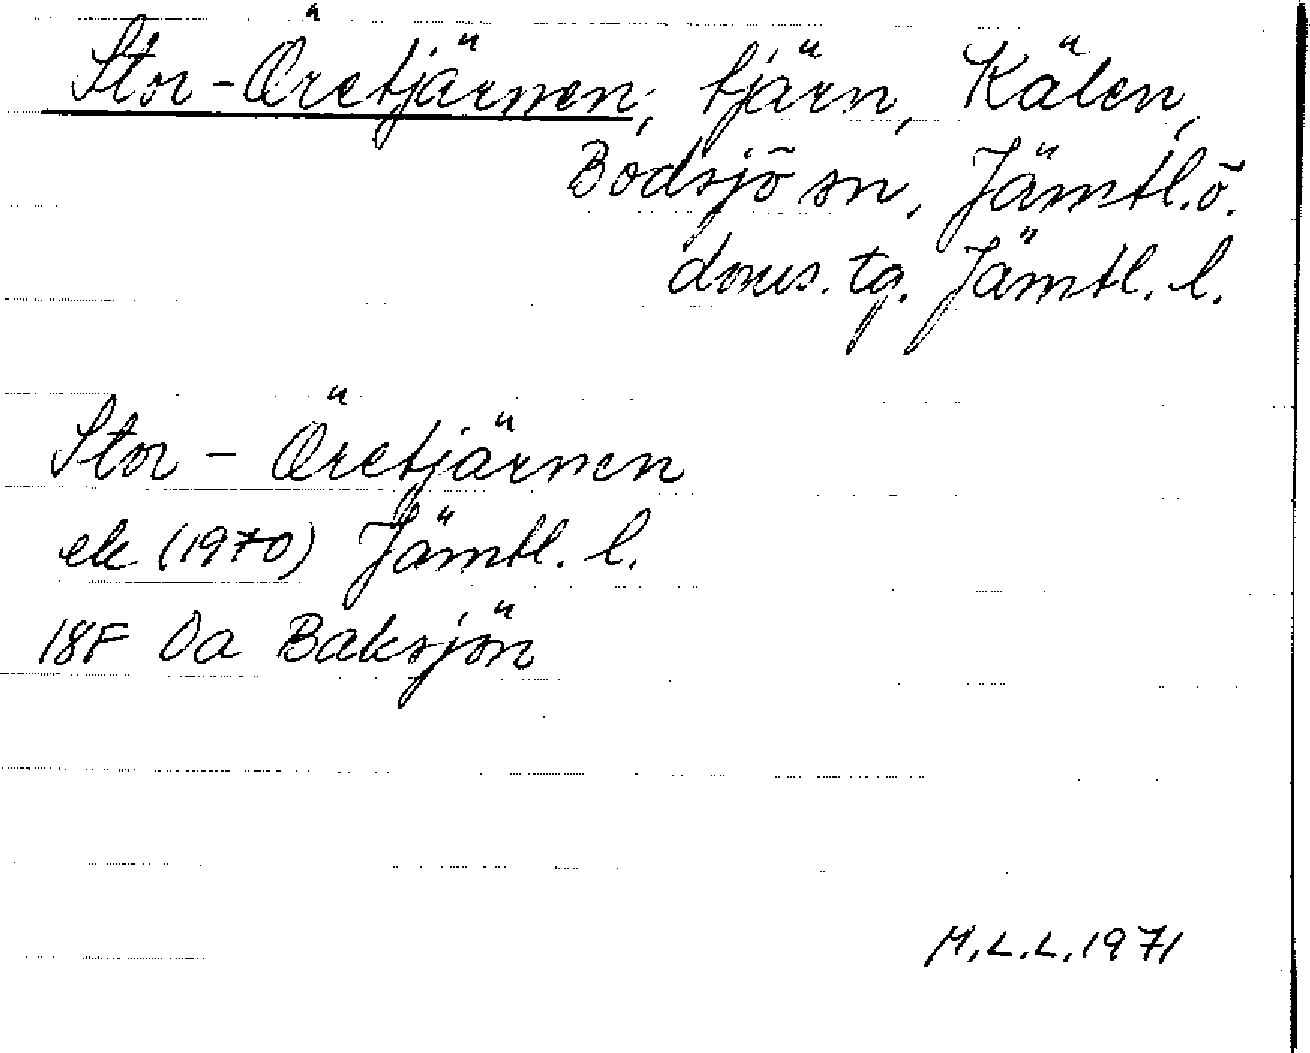 Stor-Öretjärnen, tjärn, Kälen,
Bodsjö sn, Jämtl. ö.
doms. tg. Jämtl. l.
Stor-Öretjärnen
ek (1970) Jämtl. l.
18F 0a Baksjön
M.L.L. 1971